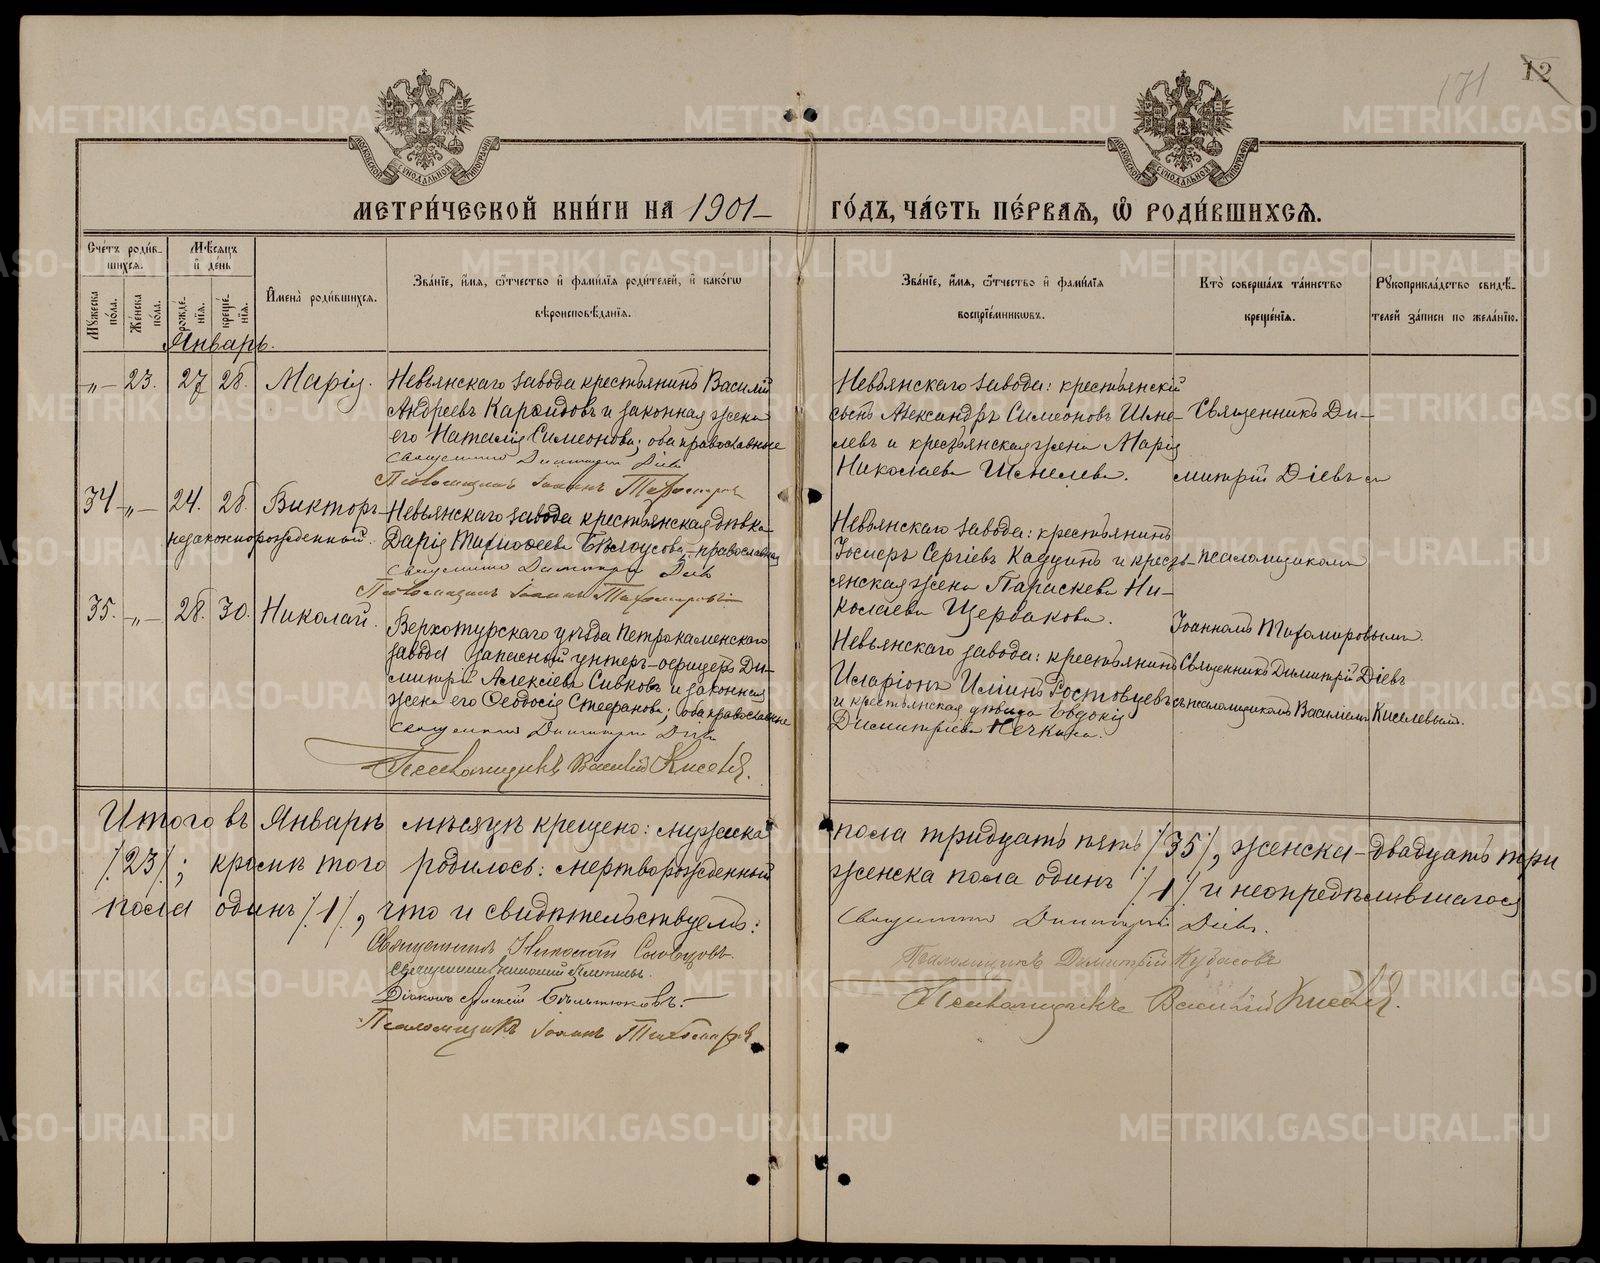 171
12
МОСКОВСКОЙ СѴНОДАЛЬНОЙ ТИПОГРАФІИ
МОСКОВСКОЙ СѴНОДАЛЬНОЙ ТИПОГРАФІИ
МЕТРИ́ЧЕСКОЙ КНИ́ГИ НА 1901 ГО́ДЪ, ЧА́СТЬ ПЕ́РВАѦ, Ѽ РОДИ́ВШИХСѦ.
Сче́тъ роди́вшихсѧ.
Мꙋ́жеска по́ла.
Же́нска по́ла.
Мѣ́сѧцъ и҆ де́нь
рожде́нїѧ.
креще́нїѧ.
И҆мена̀ роди́вшихсѧ.
Зва́нїе, и҆́мѧ, ѻ҆́тчество и҆ фами́лїѧ роди́телей, и҆ како́гѡ вѣроисповѣ́данїѧ.
Зва́нїе, и҆́мѧ, ѻ҆́тчество и҆ фами́лїѧ воспрїе́мникѡвъ.
Кто̀ соверша́лъ та́инство креще́нїѧ.
Рꙋкоприкла́дство свидѣ́телей за́писи по жела́нїю.
Январь.
„ — 23. 27 28. Марія.
Невьянскаго завода крестьянинъ Василій
Андреевъ и законная жена
его Наталія Симеонова; оба православные
Священникъ Димитрій Діевъ
Псаломщикъ Іоаннъ Тихомировъ
Невьянскаго завода: крестьянскій
сынъ Александръ Симеоновъ Шме-
левъ и крестьянская жена Марія
Николаева Шмелева.
Священникъ Ди-
митрій Діевъ съ
34 — „ — 24. 28. Викторъ
незаконнорожденный.
Невьянскаго завода крестьянская дѣвка
Дарія Тимофеева Бѣлоусова, православная
Священникъ Димитрій Діевъ
Псаломщикъ Іоаннъ Тихомировъ
Невьянскаго завода: крестьянинъ
Іосифъ Сергіевъ и кресть-
янская жена Параскева Ни-
колаева Щербакова.
псаломщикомъ
Іоанномъ Тихомировымъ.
35. — „ — 28. 30. Николай.
Верхотурскаго уѣзда Петрокаменскаго
завода запасный унтеръ-офицеръ Ди-
митрій Алексіевъ Сивковъ и законная
жена его Ѳеодосія Стефанова; оба православные
Священникъ Димитрій Діевъ
Псаломщикъ Василій Киселевъ.
Невьянскаго завода: крестьянинъ
Иларіонъ Иліинъ Ростовцевъ
и крестьянская дѣвица Евдокія
Димитріева Нечкина.
Священникъ Димитрій Діевъ
съ псаломщикомъ Василіемъ Киселевымъ.
Итого въ Январѣ мѣсяцѣ крещено: мужска пола тридцать пять /35/, женска — двадцать три
/23/; кромѣ того родилось: мертворожденный женска пола одинъ /1/ и неопредѣлившагося
пола одинъ /1/, что и свидѣтельствуемъ:
Священникъ Димитрій Діевъ.
Священникъ Николай Словцовъ.
Псаломщикъ Димитрій Кубасовъ
Діаконъ Бѣльтюковъ.
Псаломщикъ Василій Киселевъ.
Псаломщикъ Іоаннъ Тихомировъ
METRIKI.GASO-URAL.RU